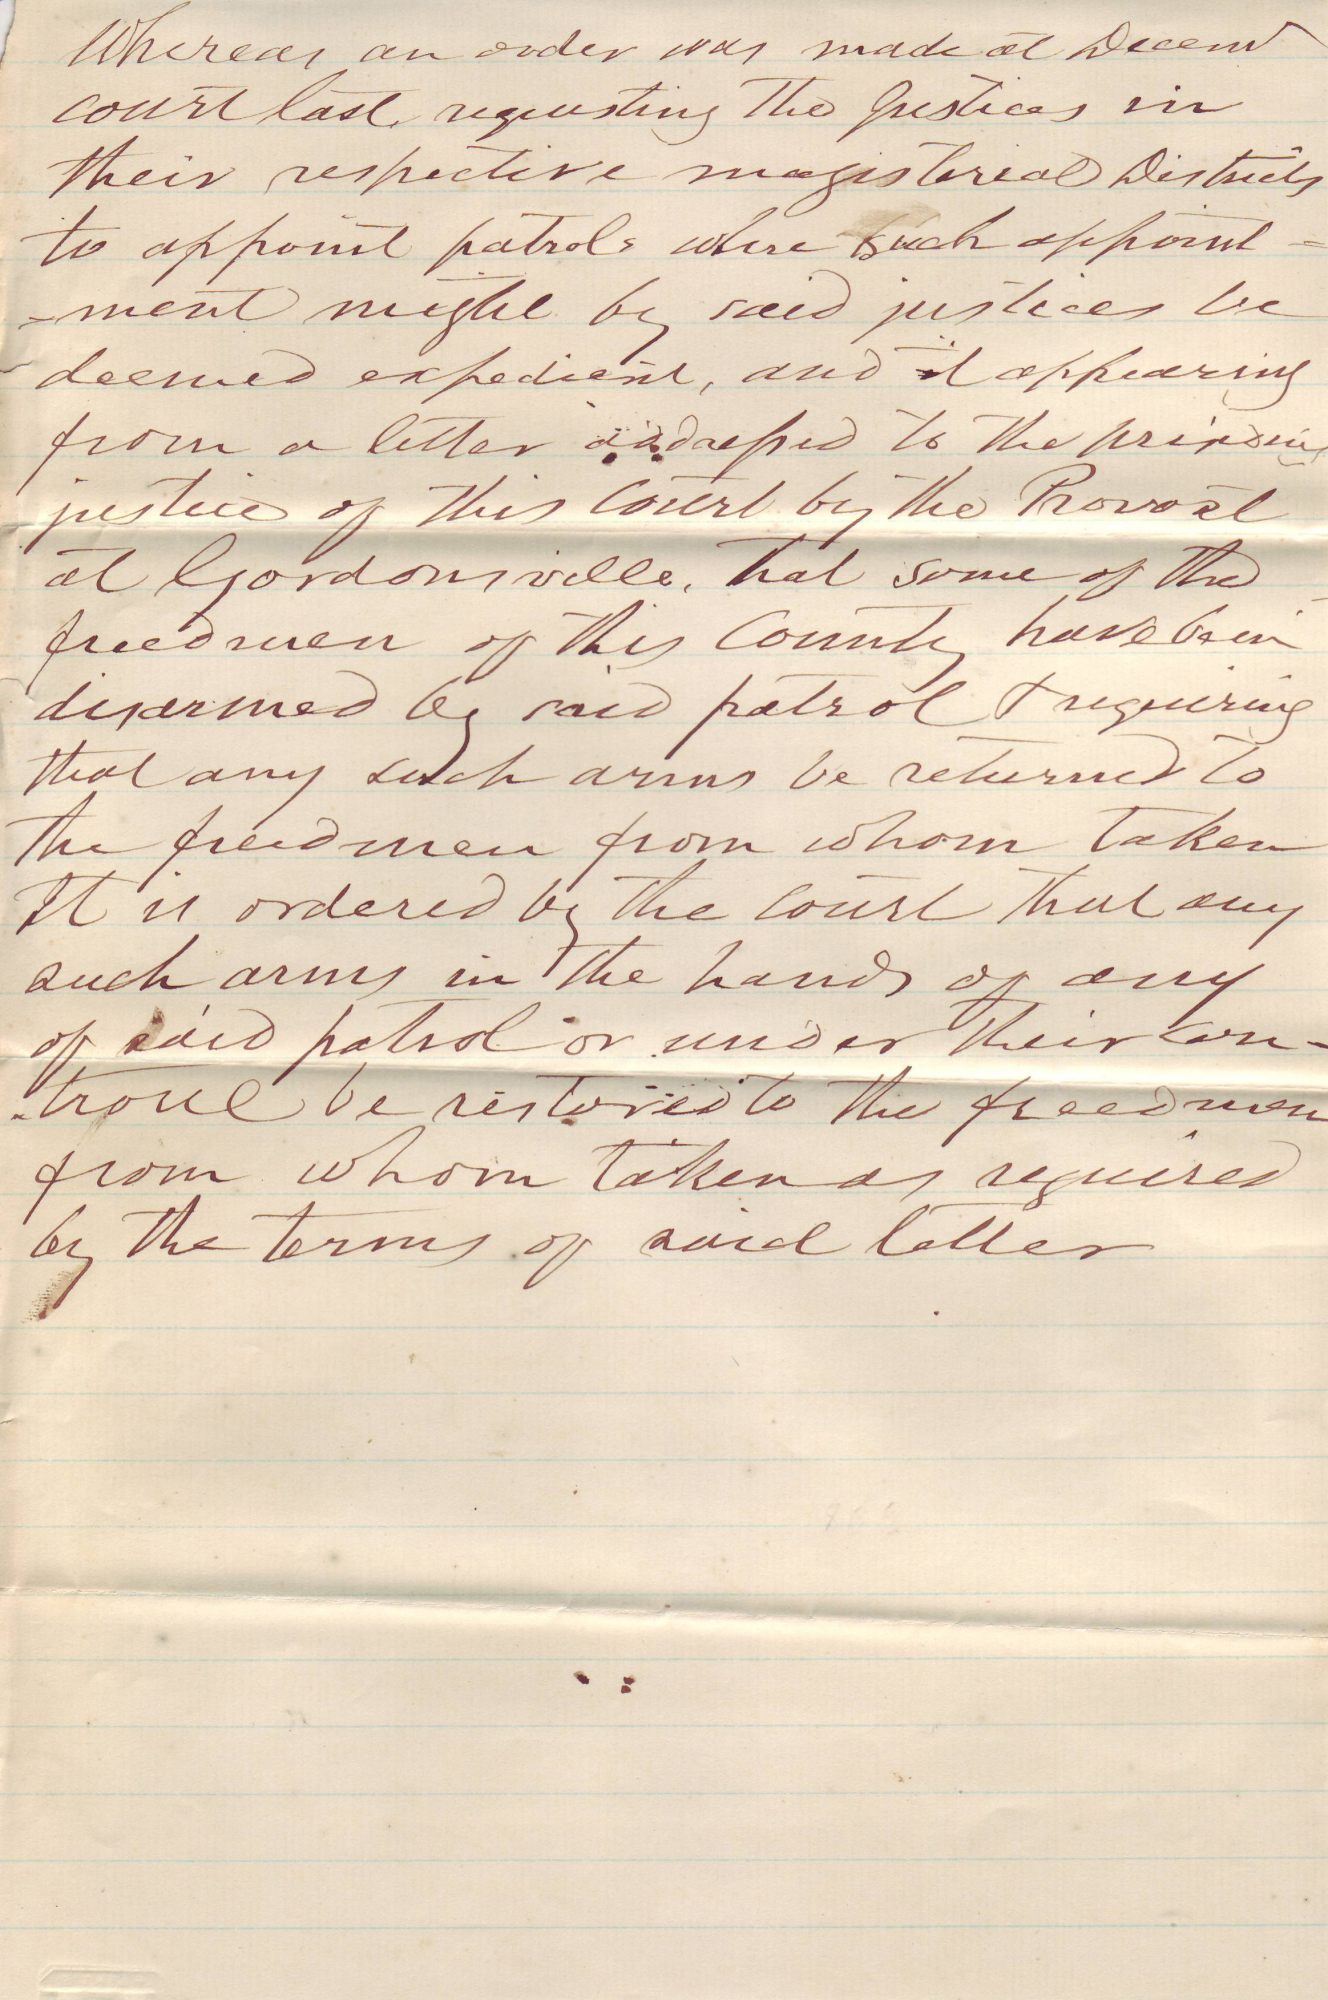 Whereas an order was made at Decem
court last, requesting the Justices in
their respective magisterial Districts
to appoint patrols where such appoint=
=ment might by said justices be
deemed expedient, and it appearing
from a letter addressed to the
justice of this Court by the Provost
at Gordonsville, that some of the
freedmen of this County have been
disarmed by said patrol & requiring
that any such arms be returned to
the freedmen from whom taken
It is ordered by the court that any
such arms in the hands of any
of said patrol or under their con-
-troul be restored to the freedmen
from whom taken as required
by the terms of said letter